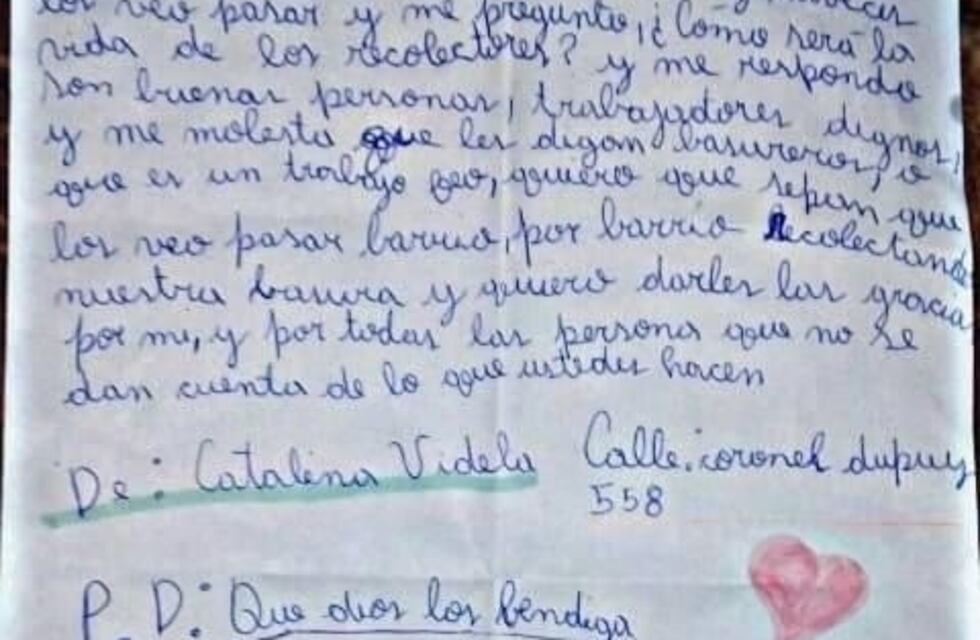 los veo pasar y me pregunto, ¿Como será la
vida de los recolectores? y me respondo
son buenas personas, trabajadores dignos,
y me molesta que les digan basureros, o
que es un trabajo feo, quiero que sepan que
los veo pasar barrio, por barrio Recolectando
nuestra basura y quiero darles las gracias
por mi, y por todas las persona que no se
dan cuenta de lo que ustedes hacen
De: Catalina Videla Calle: coronel dupuy
558
P. D: Que dios los bendiga